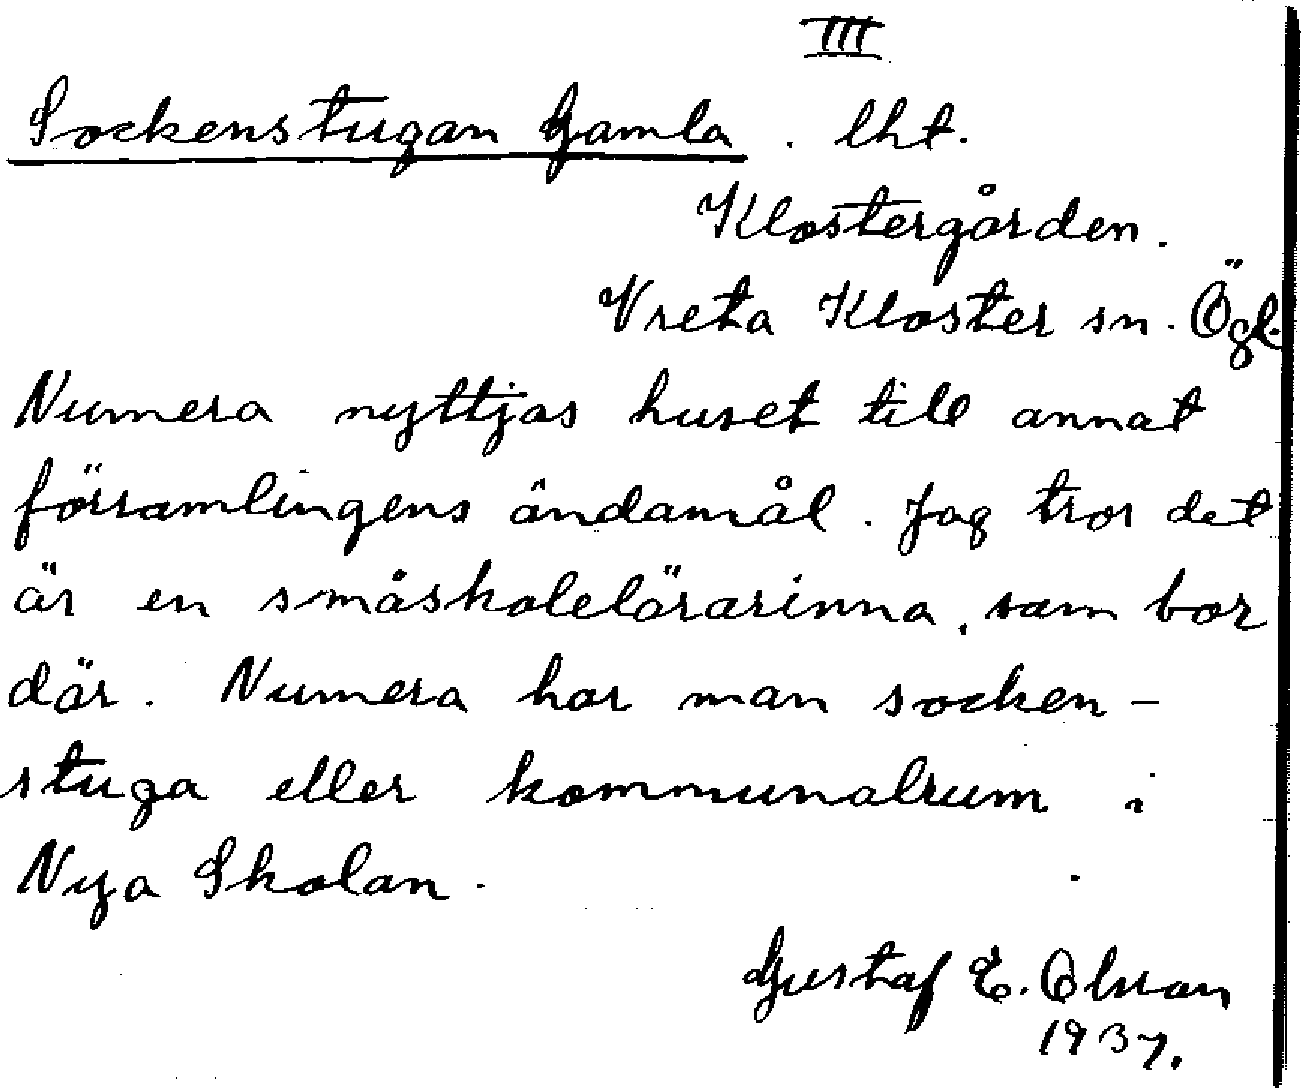 III
Sockenstugan Gamla . lht.
Klostergården.
Vreta Kloster sn. Ögl.
Numera nyttjas huset till annat
församlingens ändamål. Jag tror det
är en småskolelärarinna, som bor
där. Numera har man socken-
stuga eller kommunalrum i
Nya Skolan.
Gustaf E. Olsson
1937.